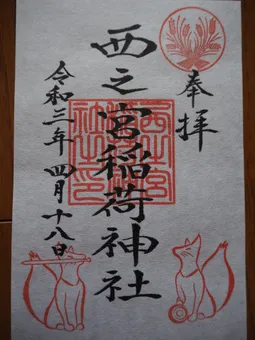 奉拝
西之宮稲荷神社
令和三年四月十八日